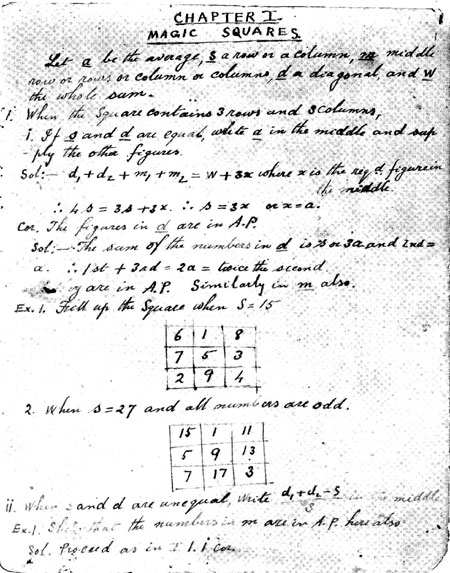 CHAPTER I.
MAGIC SQUARES
Let a be the average, S a row or a column, m middle
row or rows or column or columns, d a diagonal, and W
the whole sum.
1. When the Square contains 3 rows and 3 columns,
i. If s and d are equal, write a in the middle and sup
-ply the other figures.
Sol:— d₁ + d₂ + m₁ + m₂ = W + 3x where x is the reqd figure in
the middle.
∴ 4S = 3S + 3x. ∴ S = 3x or x = a.
Cor. The figures in d are in A.P.
Sol:— The sum of the numbers in d is S or 3a and 2nd =
a. ∴ 1st + 3rd = 2a = twice the second
are in A.P. Similarly in m also.
Ex. 1. Fill up the Square when S = 15
6 1 8
7 5 3
2 9 4
2. When S = 27 and all numbers are odd.
15 1 11
5 9 13
7 17 3
ii. When s and d are unequal, write (d₁ + d₂ - S)/3 in the middle
Ex. 1. Show that the numbers in m are in A.P. here also
Sol. Proceed as in I 1.i cor.